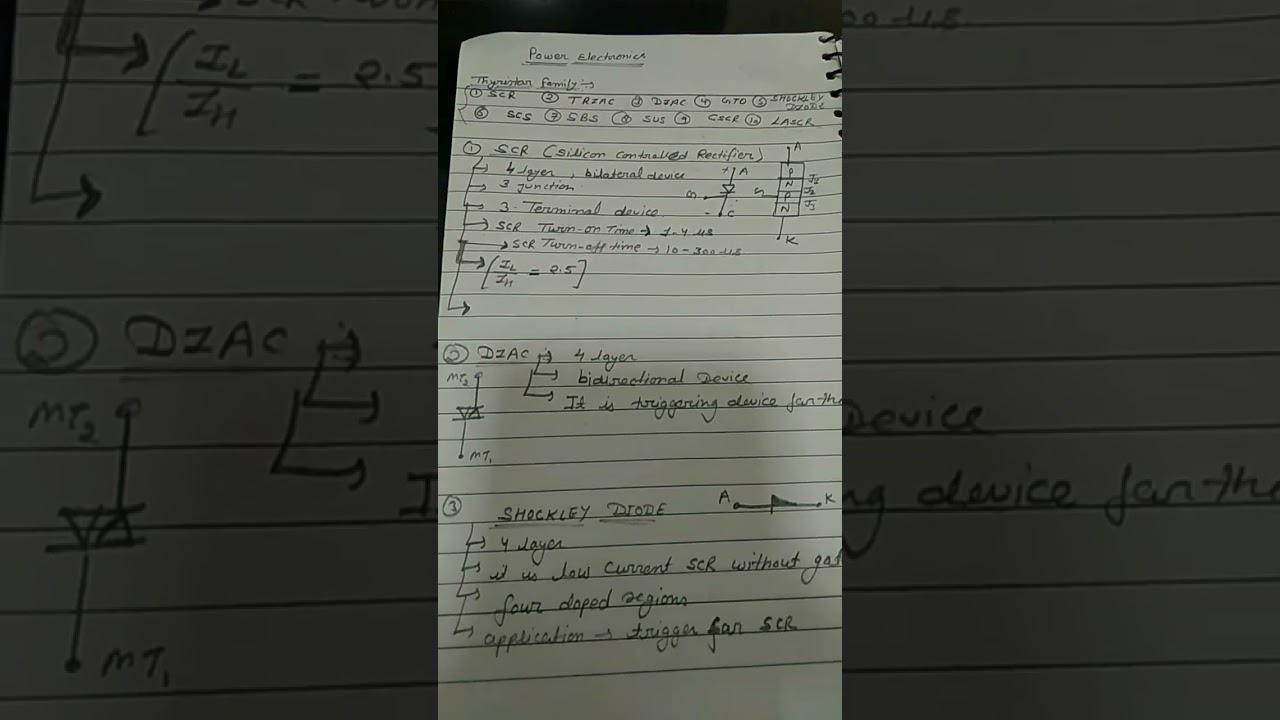 Power Electronics
Thyristor family :-
① SCR ② TRIAC ③ DIAC ④ GTO ⑤ SHOCKLEY DIODE
⑥ SCS ⑦ SBS ⑧ SUS ⑨ CSCR ⑩ LASCR
① SCR (Silicon Controlled Rectifier)
→ 4 layer, bilateral device
→ 3 junction
→ 3-Terminal device
→ SCR Turn-on Time → 1-4 µs
→ SCR Turn-off time → 10-300 µs
→ [IL/IH = 2.5]
+ A
G
- C
A
P
N J1
G P J2
N J3
K
② DIAC → 4 layer
→ bidirectional Device
→ It is triggering device for the
MT2
MT1
③ SHOCKLEY DIODE
A K
→ 4 layer
→ it is low current SCR without
→ four doped regions
→ application → trigger for SCR